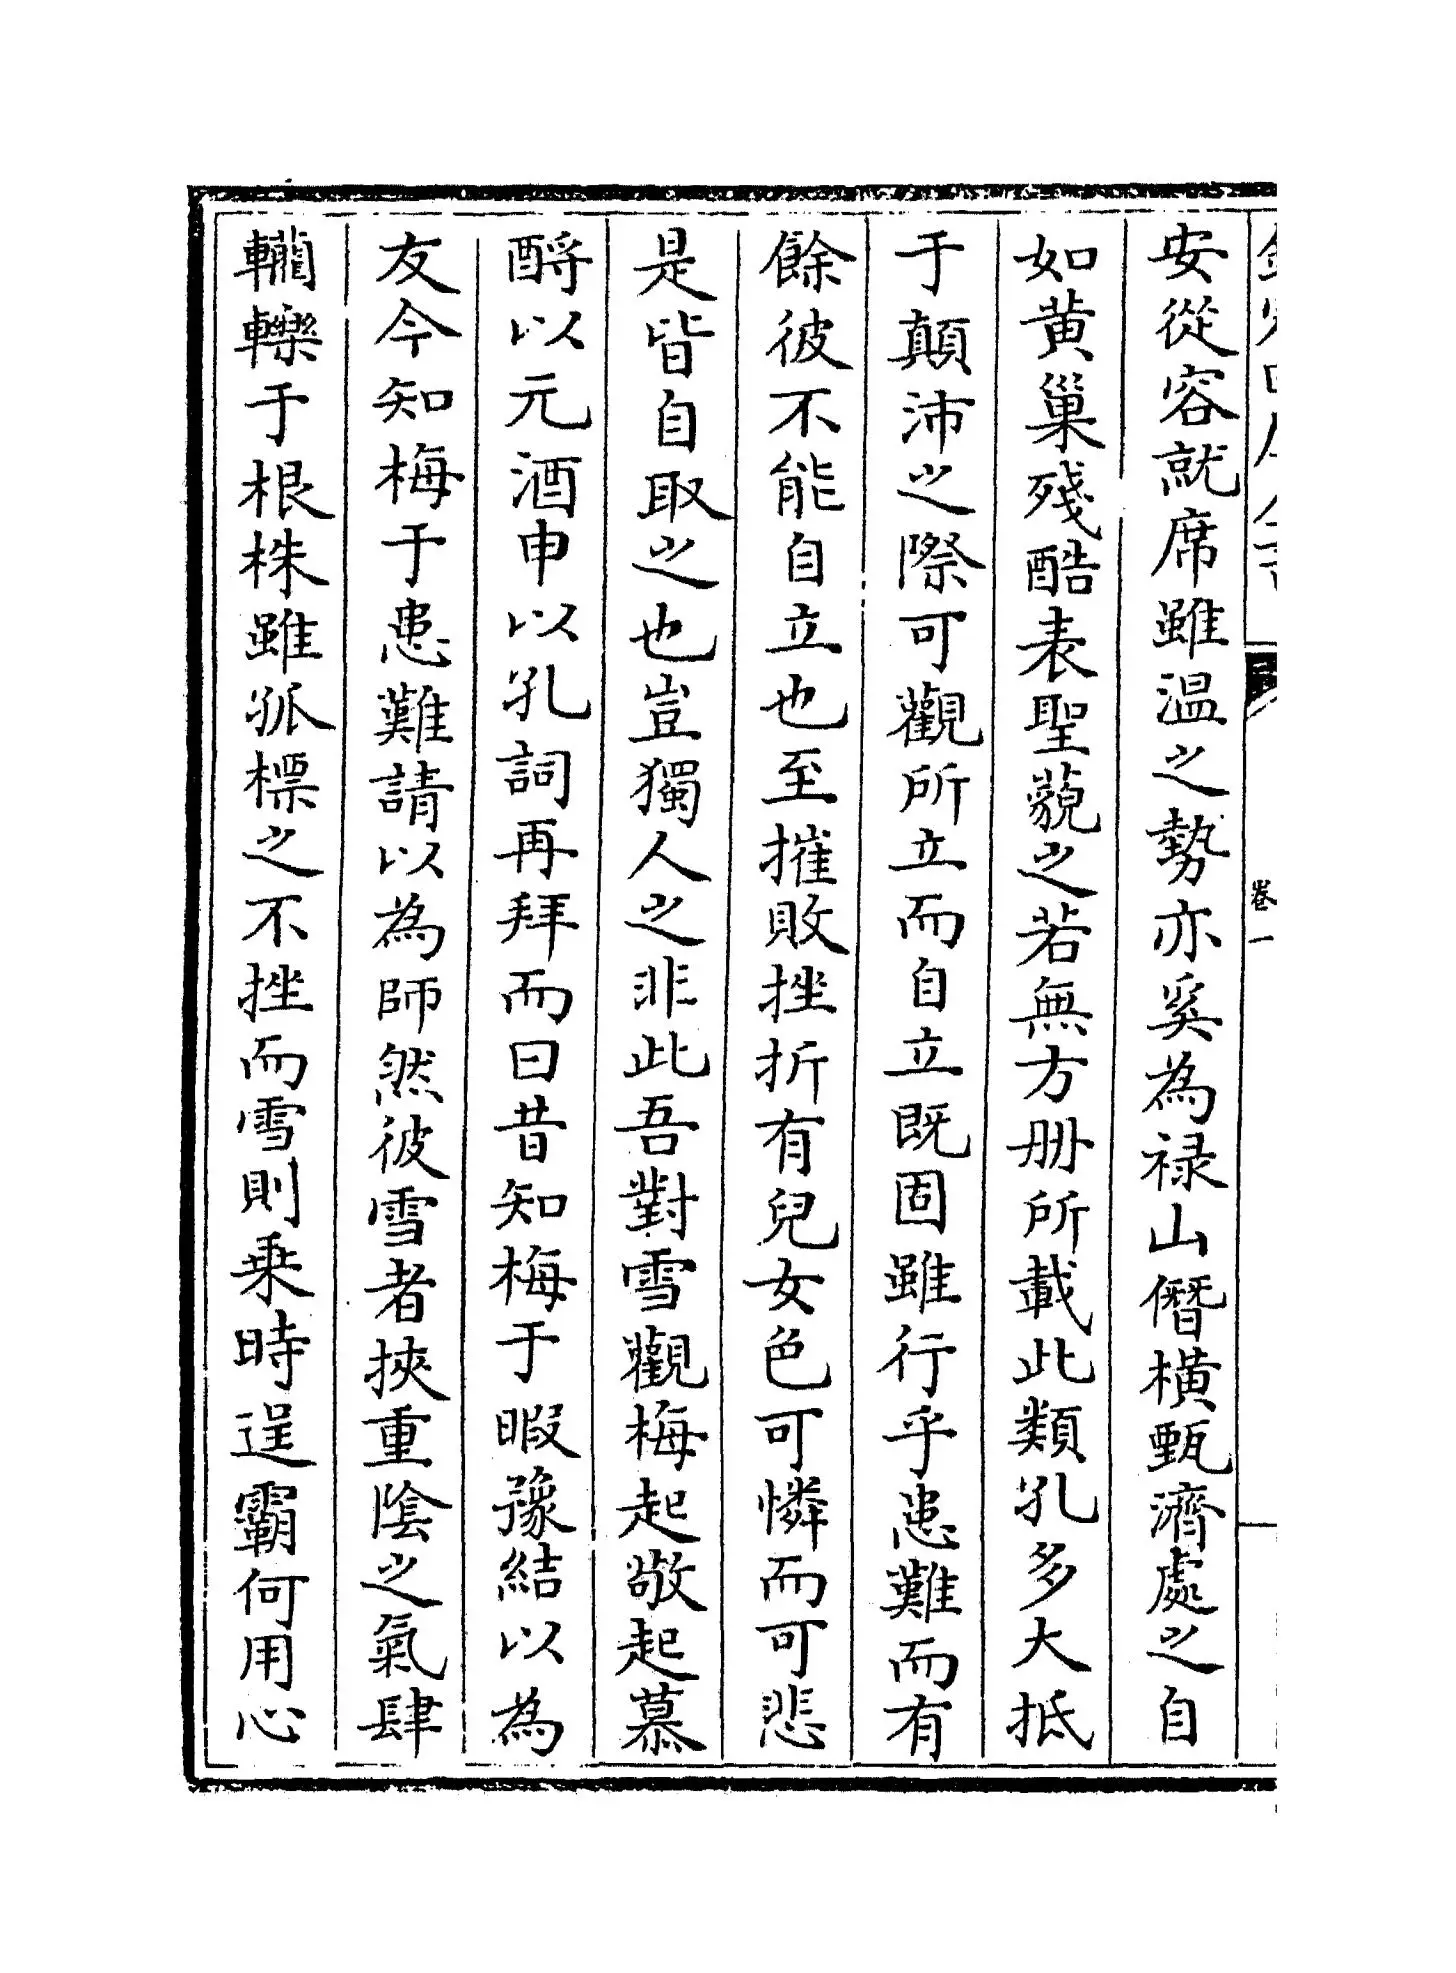 卷一
安從容就席雖温之勢亦奚為禄山僭橫甄濟處之自
如黄巢殘酷表聖藐之若無方册所載此類孔多大抵
于顛沛之際可觀所立而自立既固雖行乎患難而有
餘彼不能自立也至摧敗挫折有兒女色可憐而可悲
是皆自取之也豈獨人之非此吾對雪觀梅起敬起慕
酹以元酒申以孔詞再拜而曰昔知梅于暇豫結以為
友今知梅于患難請以為師然彼雪者挾重陰之氣肆
轥轢于根株雖孤標之不挫而雪則乗時逞霸何用心